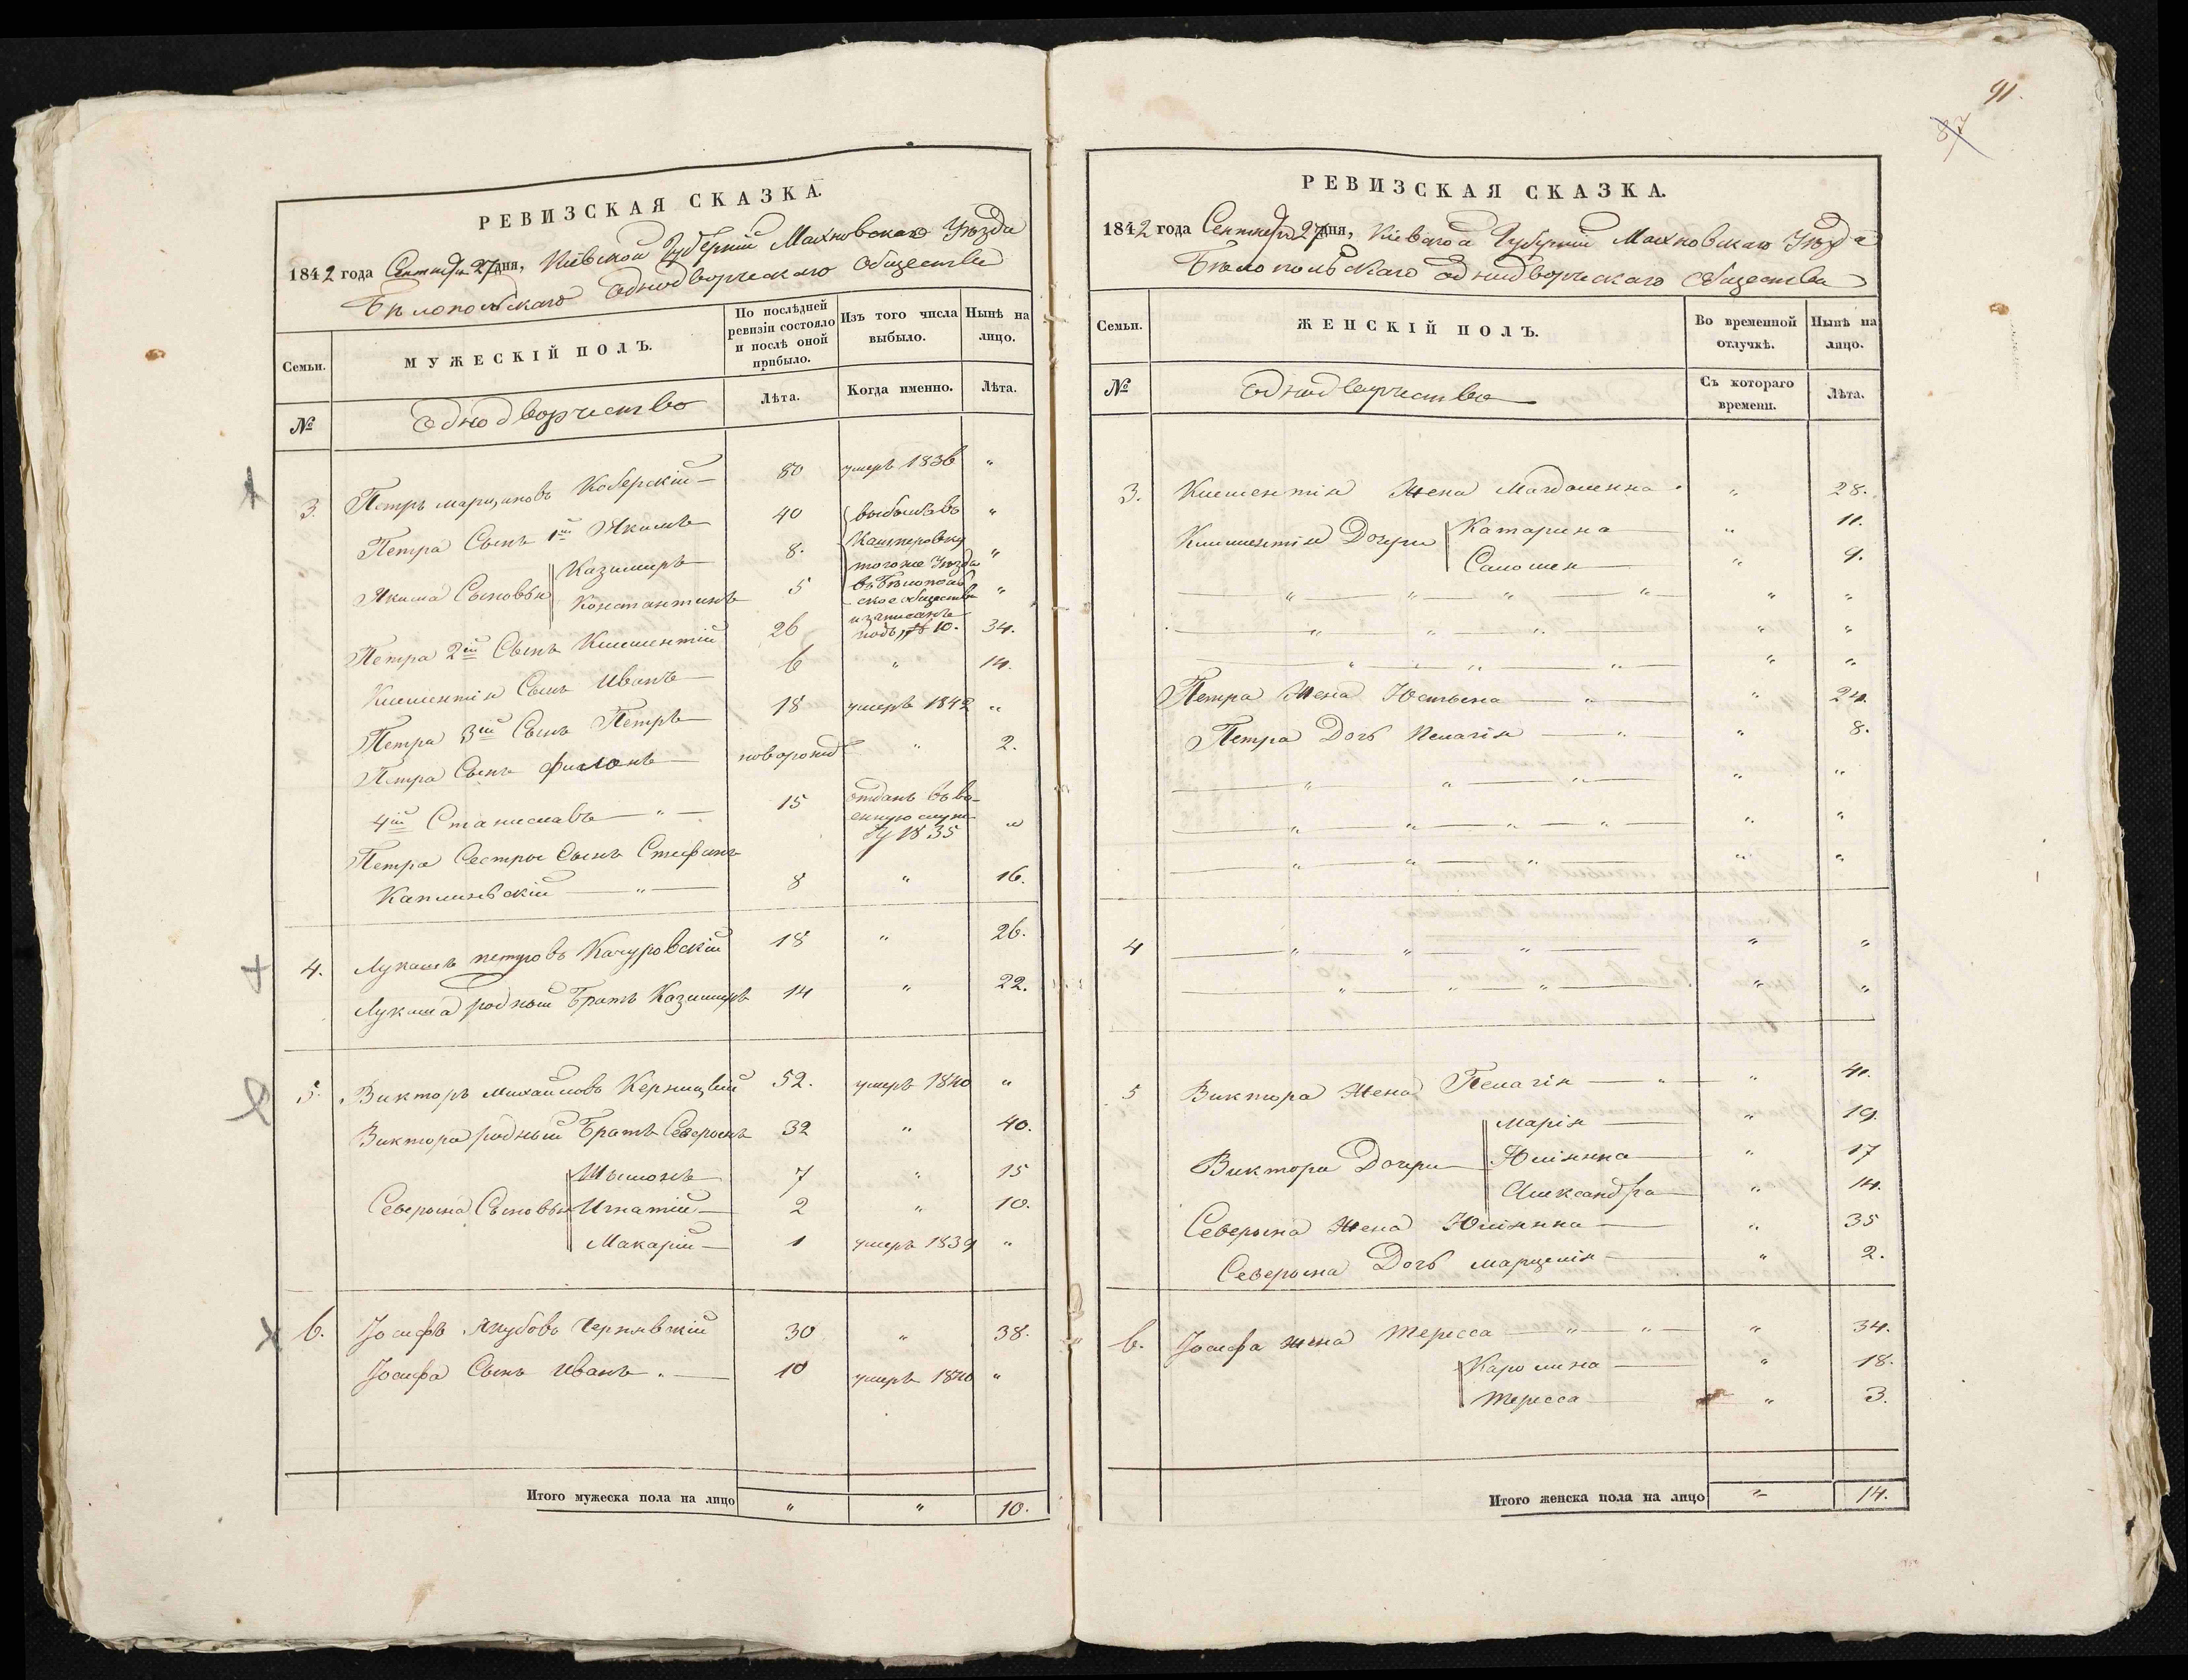 РЕВИЗСКАЯ СКАЗКА.
1842 года Сентября 27 дня, Кіевской Губерніи Махновскаго Уѣзда
Бѣлопольскаго Однодворческаго Общества
Семьи. МУЖЕСКІЙ ПОЛЪ. По послѣдней ревизіи состояло и послѣ оной прибыло. Изъ того числа выбыло. Нынѣ на лицо.
№ Однодворчество Лѣта. Когда именно. Лѣта.
3. Петръ Марциановъ Коберскій — 80 умеръ 1836 "
Петра Сынъ 1й Якимъ 40 выбылъ въ "
Кашперовку
Якима Сыновья Казимиръ 8. тогоже Уѣзда "
Константинъ 5 въ Бѣлополь
ское общество "
и записанъ
Петра 2й Сынъ Климентій 26 подъ № 10. 34.
Климентія Сынъ Иванъ 6 " 14.
Петра 3й Сынъ Петръ 18 умеръ 1842 "
Петра Сынъ Филонъ новорожд " 2.
4й Станиславъ — " — 15 отданъ въ во-
енную служ
бу 1835 "
Петра Сестры Сынъ Стефанъ
Каплинскій — " — 8 " 16.
4. Лукашъ Петровъ Качуровскій 18 " 26.
Лукаша родной Братъ Казимиръ 14 " 22.
5. Викторъ Михайловъ Керницкій 52. умеръ 1840 "
Виктора родный Братъ Северынъ 32 " 40.
Шымонъ 7 " 15
Северына Сыновья Игнатій 2 " 10.
Макарій 1 умеръ 1839 "
6. Іосифъ Якубовъ Чернявскій 30 " 38.
Іосифа Сынъ Иванъ . — 10 умеръ 1840 "
Итого мужеска пола на лицо " " 10.
91.
87
РЕВИЗСКАЯ СКАЗКА.
1842 года Сентября 27 дня, Кіевской Губерніи Махновскаго Уѣзда
Бѣлопольскаго однодворческаго Общества
Семьи. ЖЕНСКІЙ ПОЛЪ. Во временной отлучкѣ. Нынѣ на лицо.
№ Однодворчество Съ котораго времени. Лѣта.
3. Климентія Жена Магдаленна " 28.
Климентія Дочери Катарина " 11.
Саломея " 9.
" " " " " "
" " " " "
" " " " "
Петра Жена Юстына — " — " 24.
Петра Дочь Пелагія — " — " 8.
" " " " "
" " " " " "
" " " " "
4 " " " " "
" " " " "
5 Виктора Жена Пелагія — " — " 41.
Марія " 19.
Виктора Дочери Юлiянна " 17
Александра " 14.
Северына Жена Юлiянна " 35
Северына Дочь Марцелія " 2.
6. Іосифа жена Тересса — " — " — " 34.
Каролина " 18.
Тересса " 3.
Итого женска пола на лицо " 14.